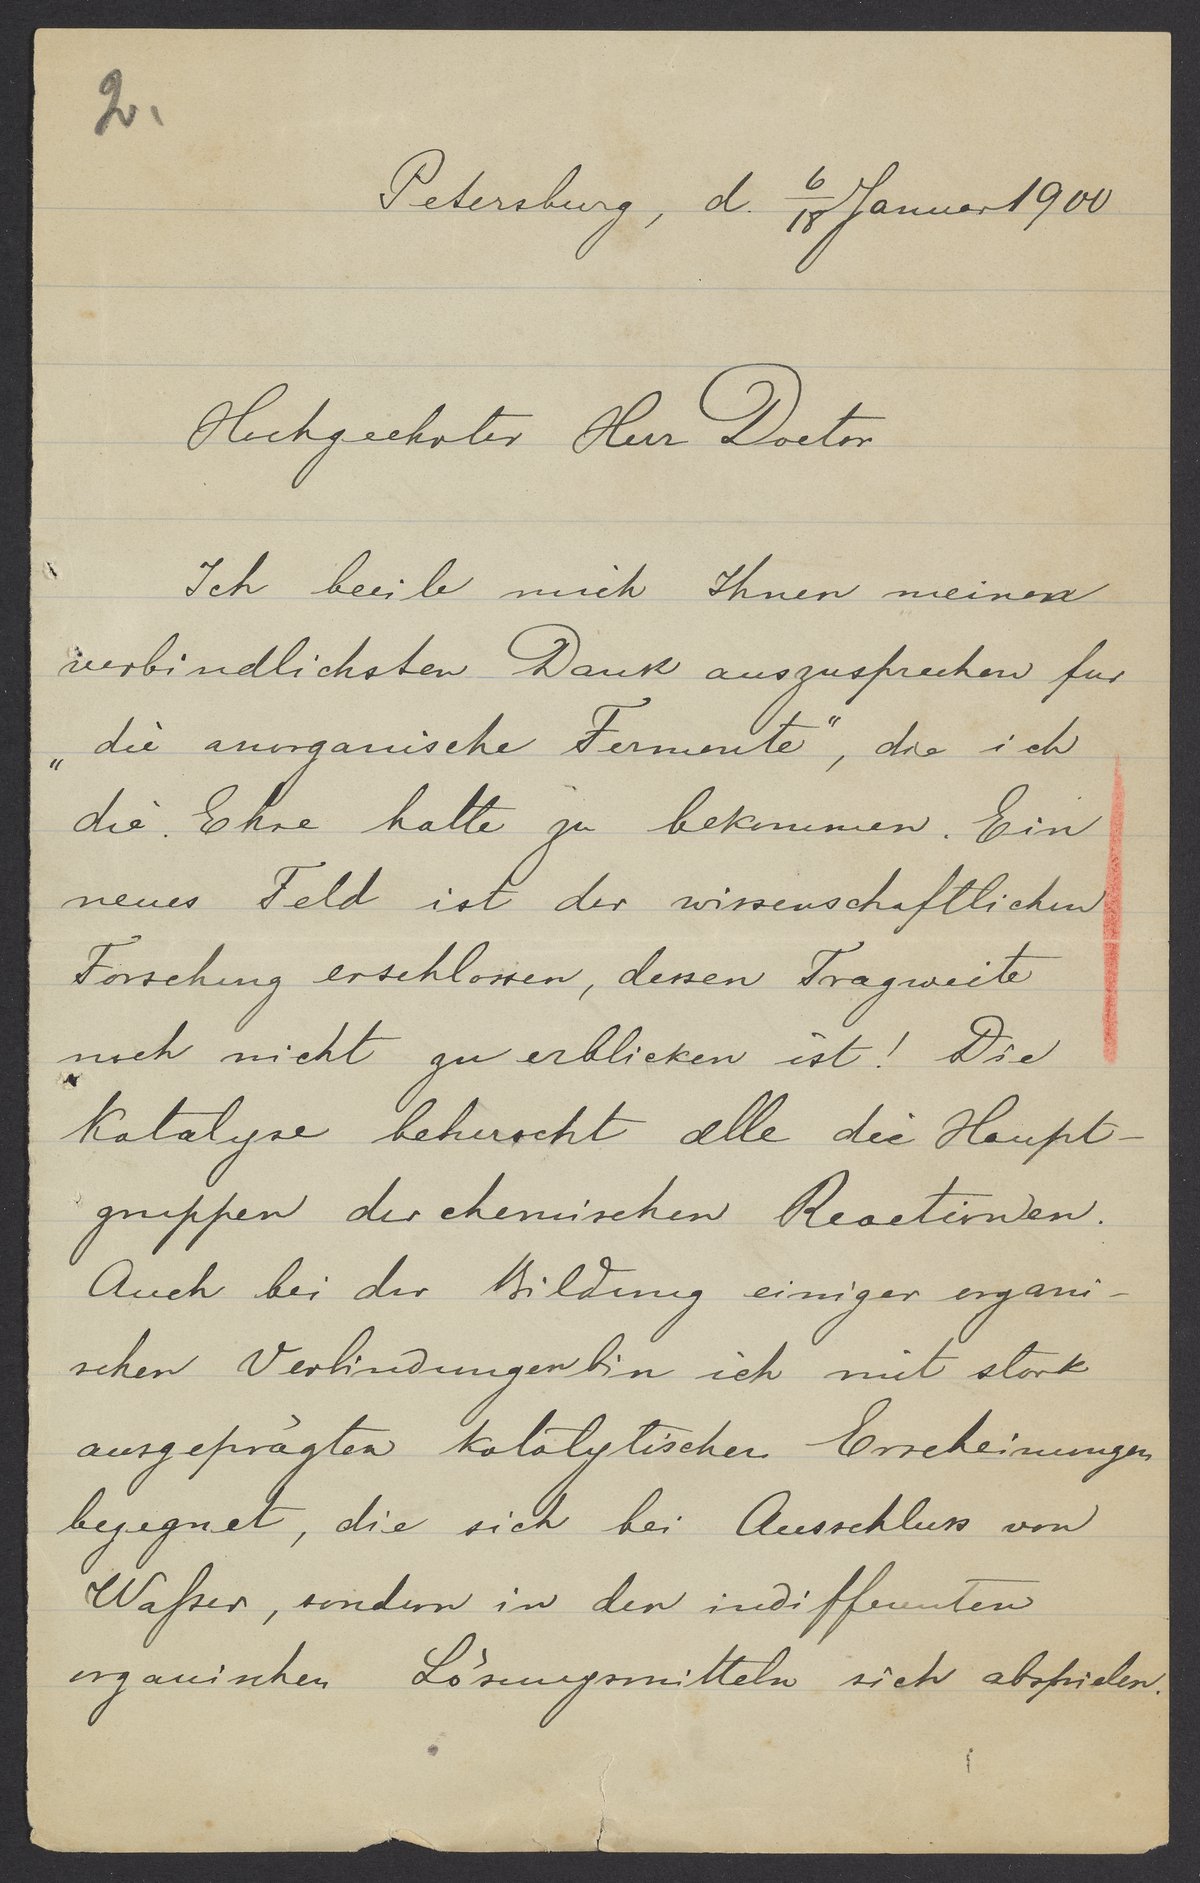 2.
Petersburg, d. 6/18 Januar 1900
Hochgeehrter Herr Doctor
Ich beeile mich Ihnen meinen
verbindlichsten Dank auszusprechen fur
„die anorganische Fermente“, die ich
die Ehre hatte zu bekommen. Ein
neues Feld ist der wissenschaftlichen
Forschung erschlossen, dessen Tragweite
noch nicht zu erblicken ist! Die
Katalyse beherscht alle die Haupt-
gruppen der chemischen Reactionen.
Auch bei der Bildung einiger organi-
schen Verbindungen bin ich mit stark
ausgeprägten katalytischen Erscheinungen
begegnet, die sich bei Ausschluss von
Waſser, sondern in den indifferenten
organischen Lösungsmitteln sich abspielen.